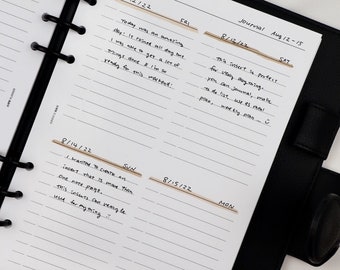 Journal Aug 12-15
8/12/22 FRI
Today was an amazing
day. It rained all day long
I was able to get a lot of
things done & I'm so
ready for this weekend!
8/13/22 SAT
This insert is perfect
for daily journaling.
You can journal, make
to do list, use as meal
plan, weekly plan ... ☺
8/14/22 SUN
I wanted to create an
insert that is more than
one note page.
This inserts can really be
used for anything ☺
8/15/22 MON